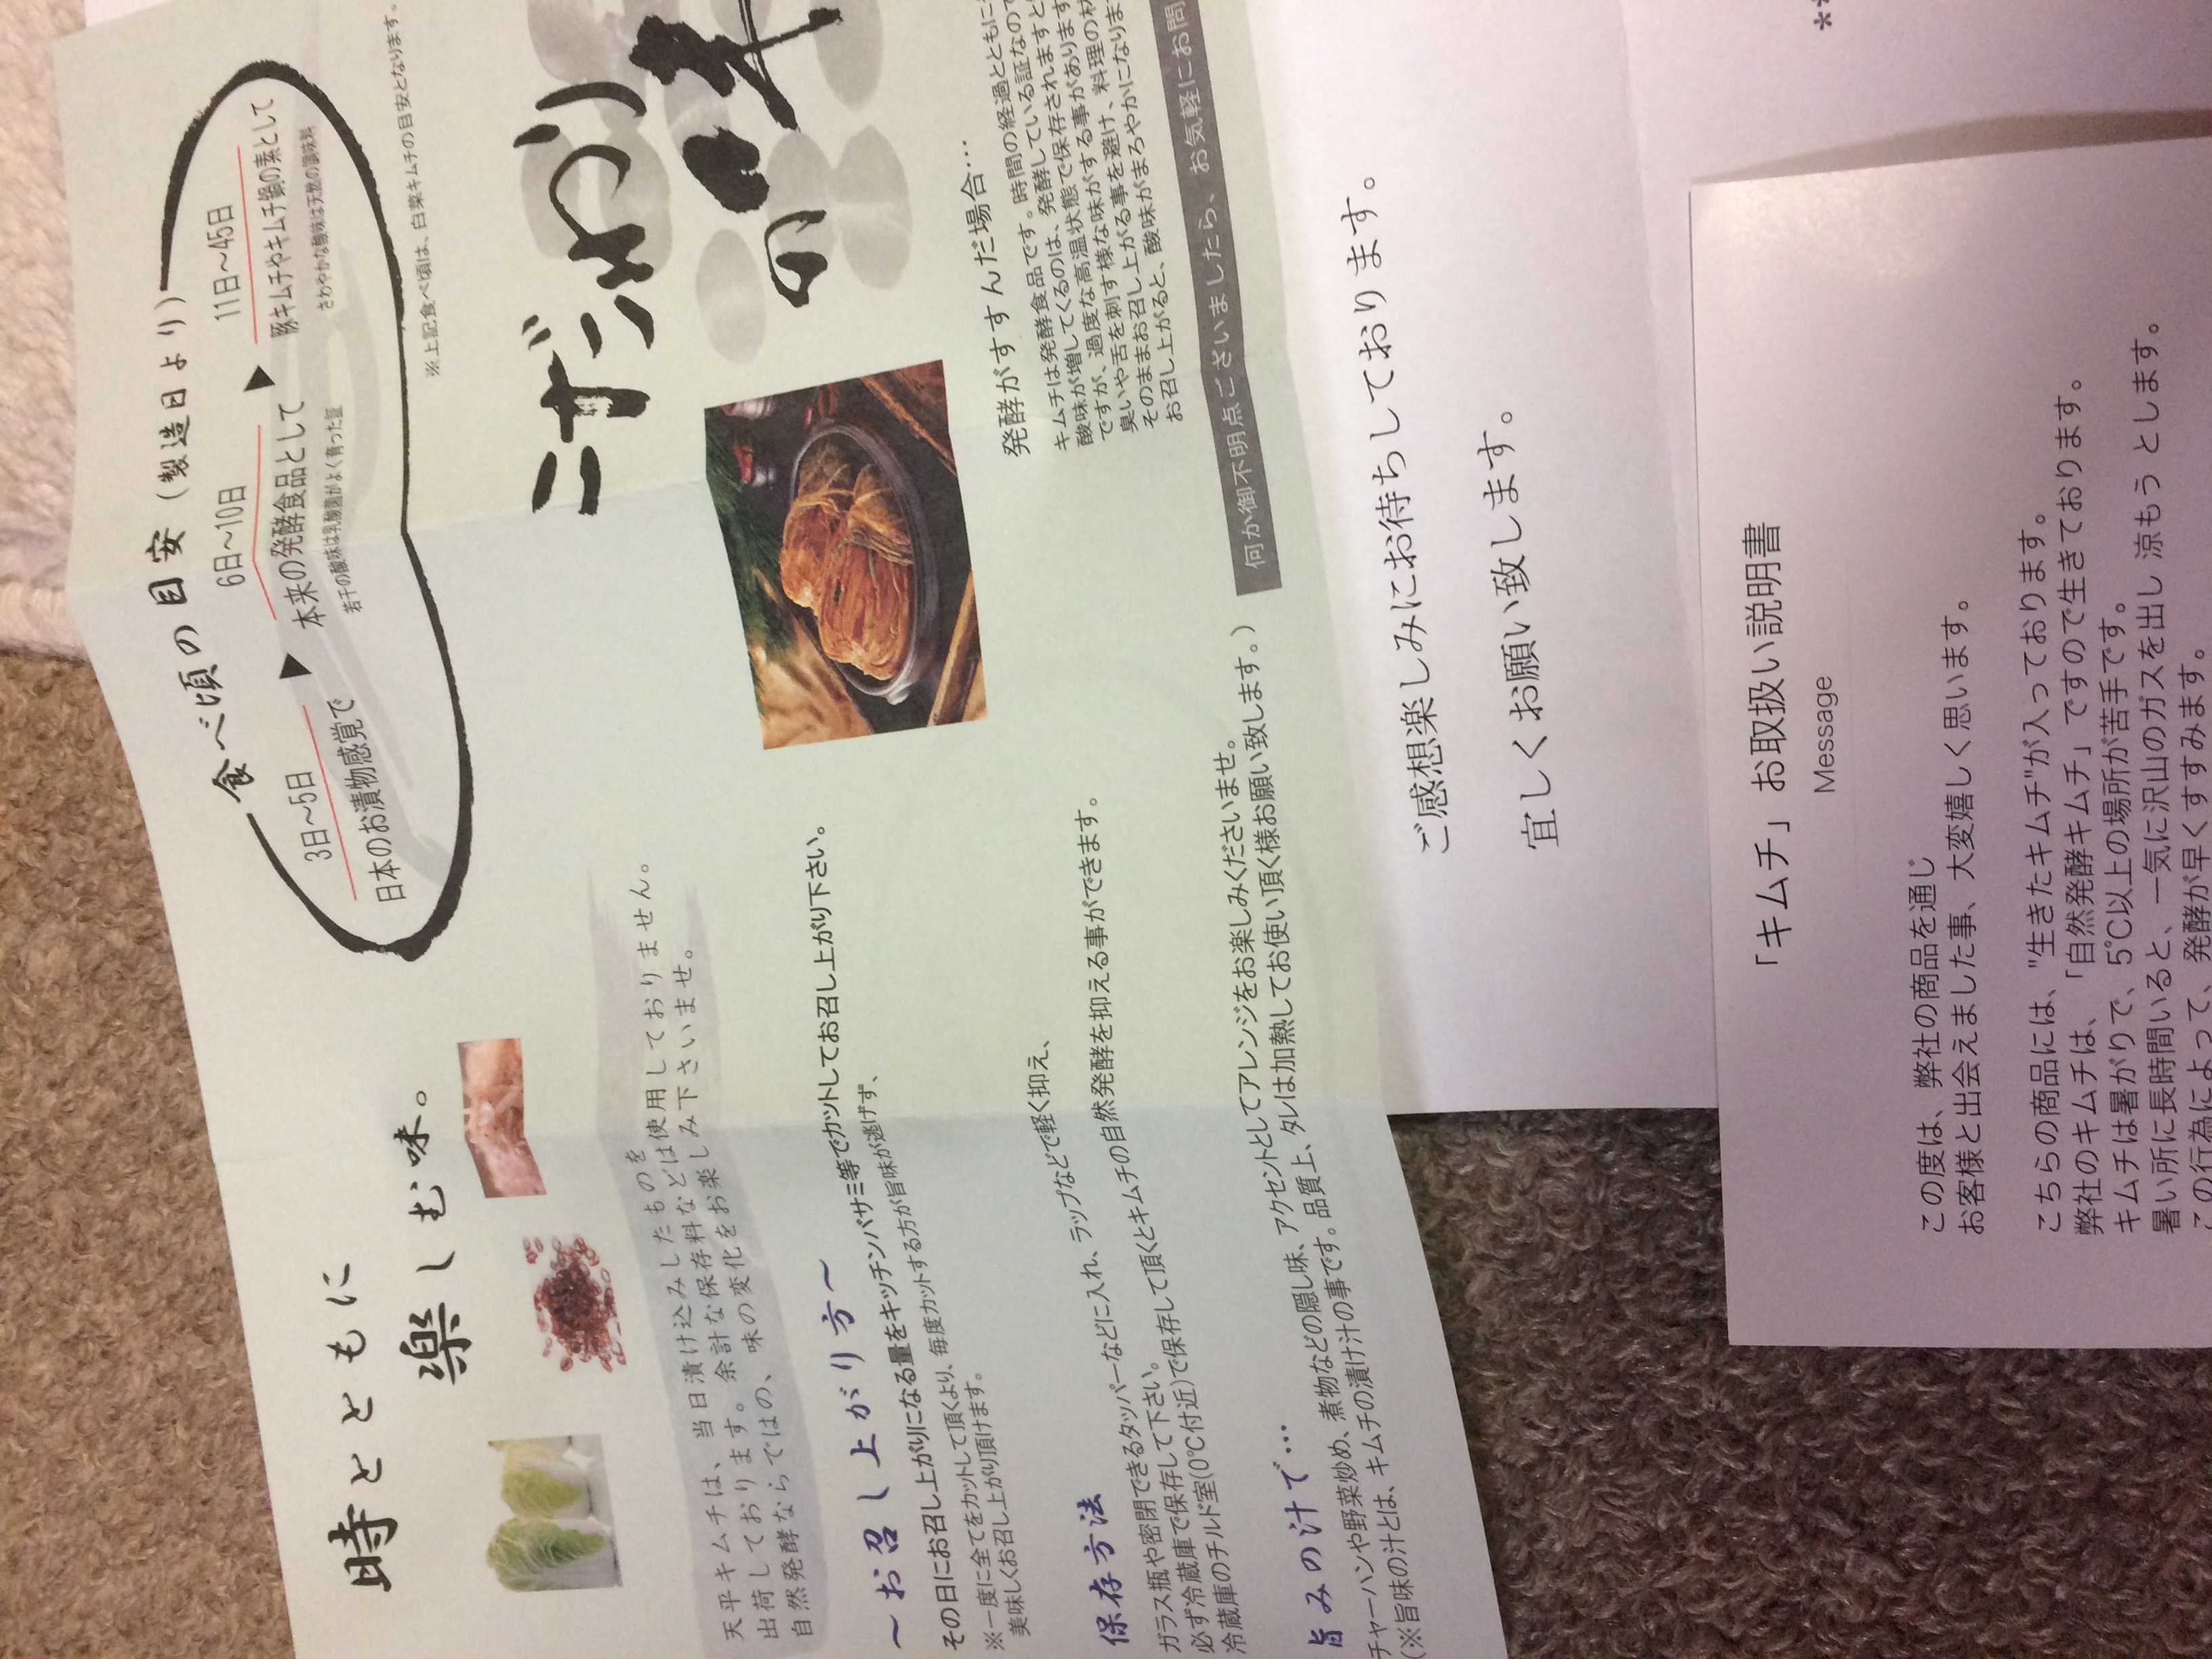 時とともに
楽しむ味。
食べ頃の目安(製造日より)
3日〜5日
日本のお漬物感覚で
6日〜10日
本来の発酵食品として
若干の酸味は乳酸菌がよく育った証
11日〜45日
豚キムチやキムチ鍋の素として
さわやかな酸味は天然の調味料
※上記食べ頃は、白菜キムチの目安となります。
天平キムチは、当日漬け込みしたものを
出荷しております。余計な保存料などは使用しておりません。
自然発酵ならではの、味の変化をお楽しみ下さいませ。
こだわり
の
〜お召し上がり方〜
その日にお召し上がりになる量をキッチンバサミ等でカットしてお召し上がり下さい。
※一度に全てをカットして頂くより、毎度カットする方が旨味が逃げず、
美味しくお召し上がり頂けます。
保存方法
ガラス瓶や密閉できるタッパーなどに入れ、ラップなどで軽く抑え、
必ず冷蔵庫で保存して下さい。
冷蔵庫のチルド室(0℃付近)で保存して頂くとキムチの自然発酵を抑える事ができます。
旨みの汁で…
チャーハンや野菜炒め、煮物などの隠し味、アクセントとしてアレンジをお楽しみくださいませ。
(※旨味の汁とは、キムチの漬け汁の事です。品質上、タレは加熱してお使い頂く様お願い致します。)
発酵がすすんだ場合…
キムチは発酵食品です。時間の経過とともに
酸味が増してくるのは、発酵している証なので
ですが、過度な高温状態で保存されますと
臭いや舌を刺す様な味がする事があります
そのままお召し上がる事を避け、料理の材
お召し上がると、酸味がまろやかになりま
何か御不明点ございましたら、お気軽にお問
ご感想楽しみにお待ちしております。
宜しくお願い致します。
**
「キムチ」お取扱い説明書
Message
この度は、弊社の商品を通じ
お客様と出会えました事、大変嬉しく思います。
こちらの商品には、"生きたキムチ"が入っております。
弊社のキムチは、「自然発酵キムチ」ですので生きております。
キムチは暑がりで、5℃以上の場所が苦手です。
暑い所に長時間いると、一気に沢山のガスを出し 涼もう とします。
この行為によって、発酵が早くすすみます。